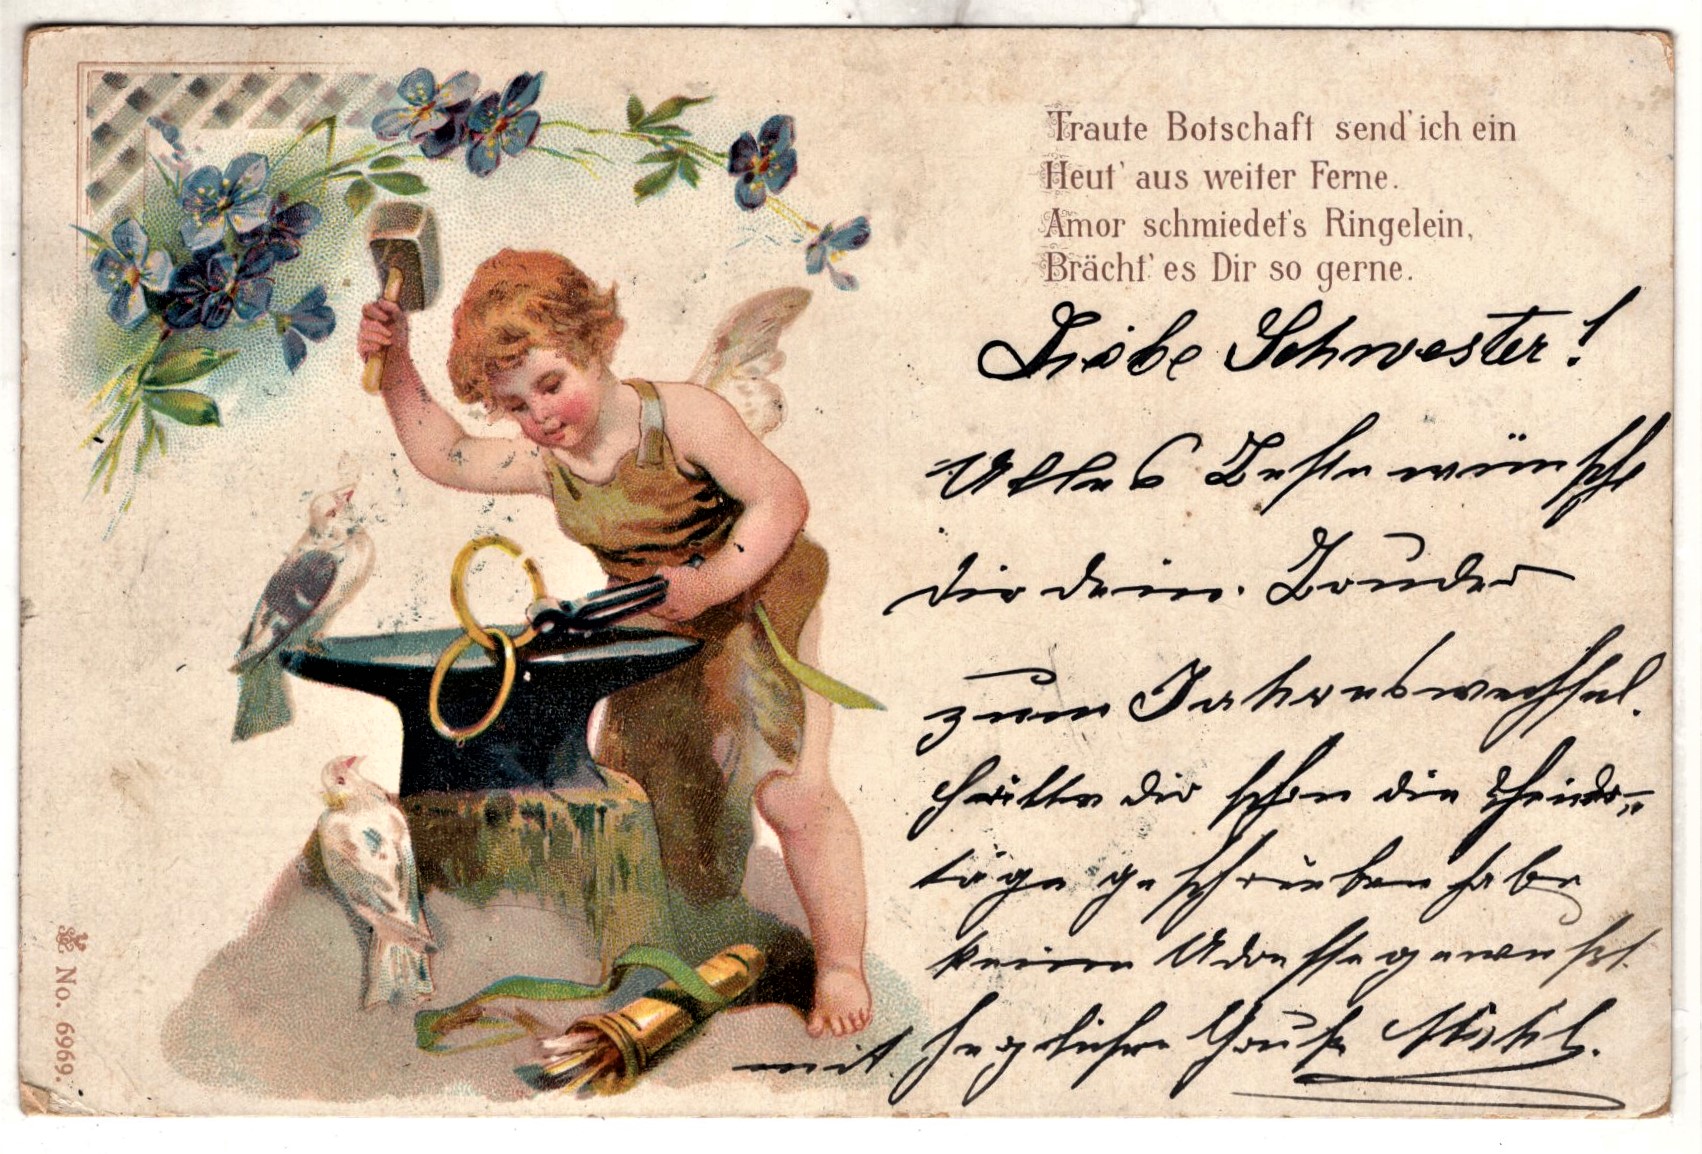 Traute Botschaft send' ich ein
Heut' aus weiter Ferne.
Amor schmiedet's Ringelein,
Brächt' es Dir so gerne.
Liebe Schwester!
Alles Beste wünscht
dir dein. Bruder
zum Jahreswechsel.
hätte dir schon die Feier-
tage geschrieben habe
keine Adresse gewußt.
mit herzlichen Gruß
No. 6969.